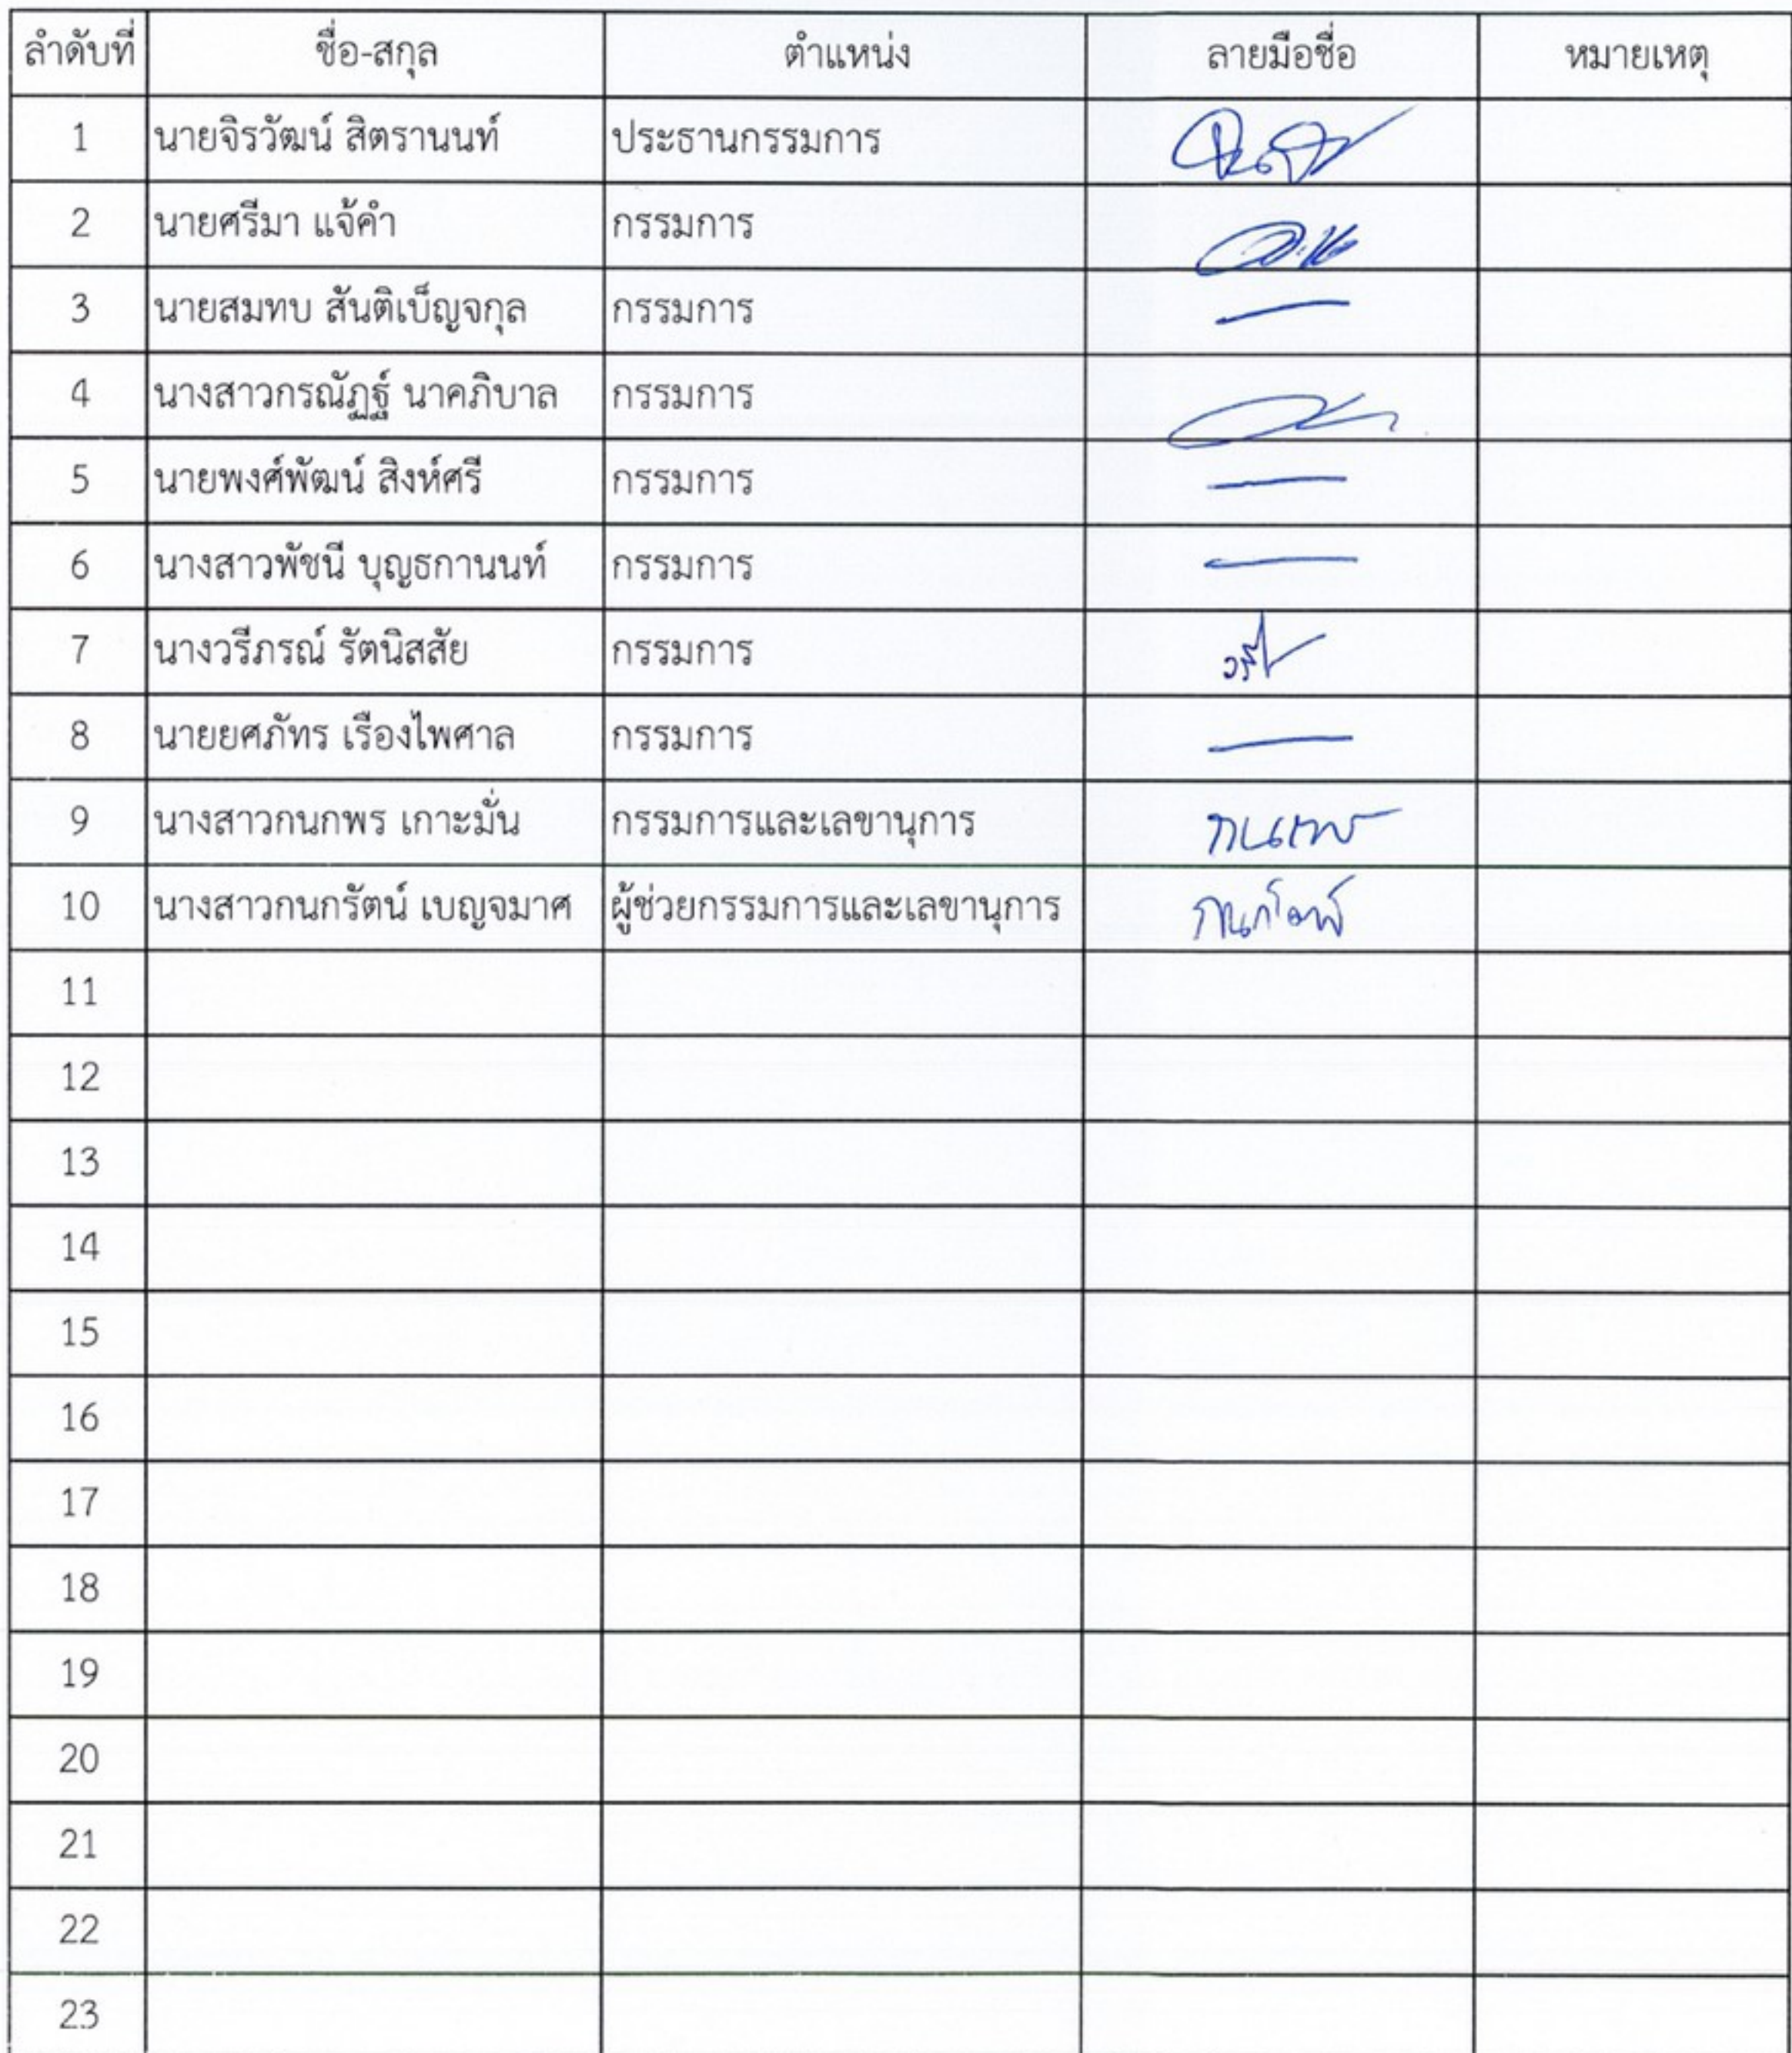 ลำดับที่ ชื่อ-สกุล ตำแหน่ง ลายมือชื่อ หมายเหตุ
1 นายจิรวัฒน์ สิตรานนท์ ประธานกรรมการ
2 นายศรีมา แจ้คำ กรรมการ
3 นายสมทบ สันติเบ็ญจกุล กรรมการ
4 นางสาวกรณัฏฐ์ นาคภิบาล กรรมการ
5 นายพงศ์พัฒน์ สิงห์ศรี กรรมการ
6 นางสาวพัชนี บุญธกานนท์ กรรมการ
7 นางวรีภรณ์ รัตนิสสัย กรรมการ
8 นายยศภัทร เรืองไพศาล กรรมการ
9 นางสาวกนกพร เกาะมั่น กรรมการและเลขานุการ กนกพร
10 นางสาวกนกรัตน์ เบญจมาศ ผู้ช่วยกรรมการและเลขานุการ
11
12
13
14
15
16
17
18
19
20
21
22
23